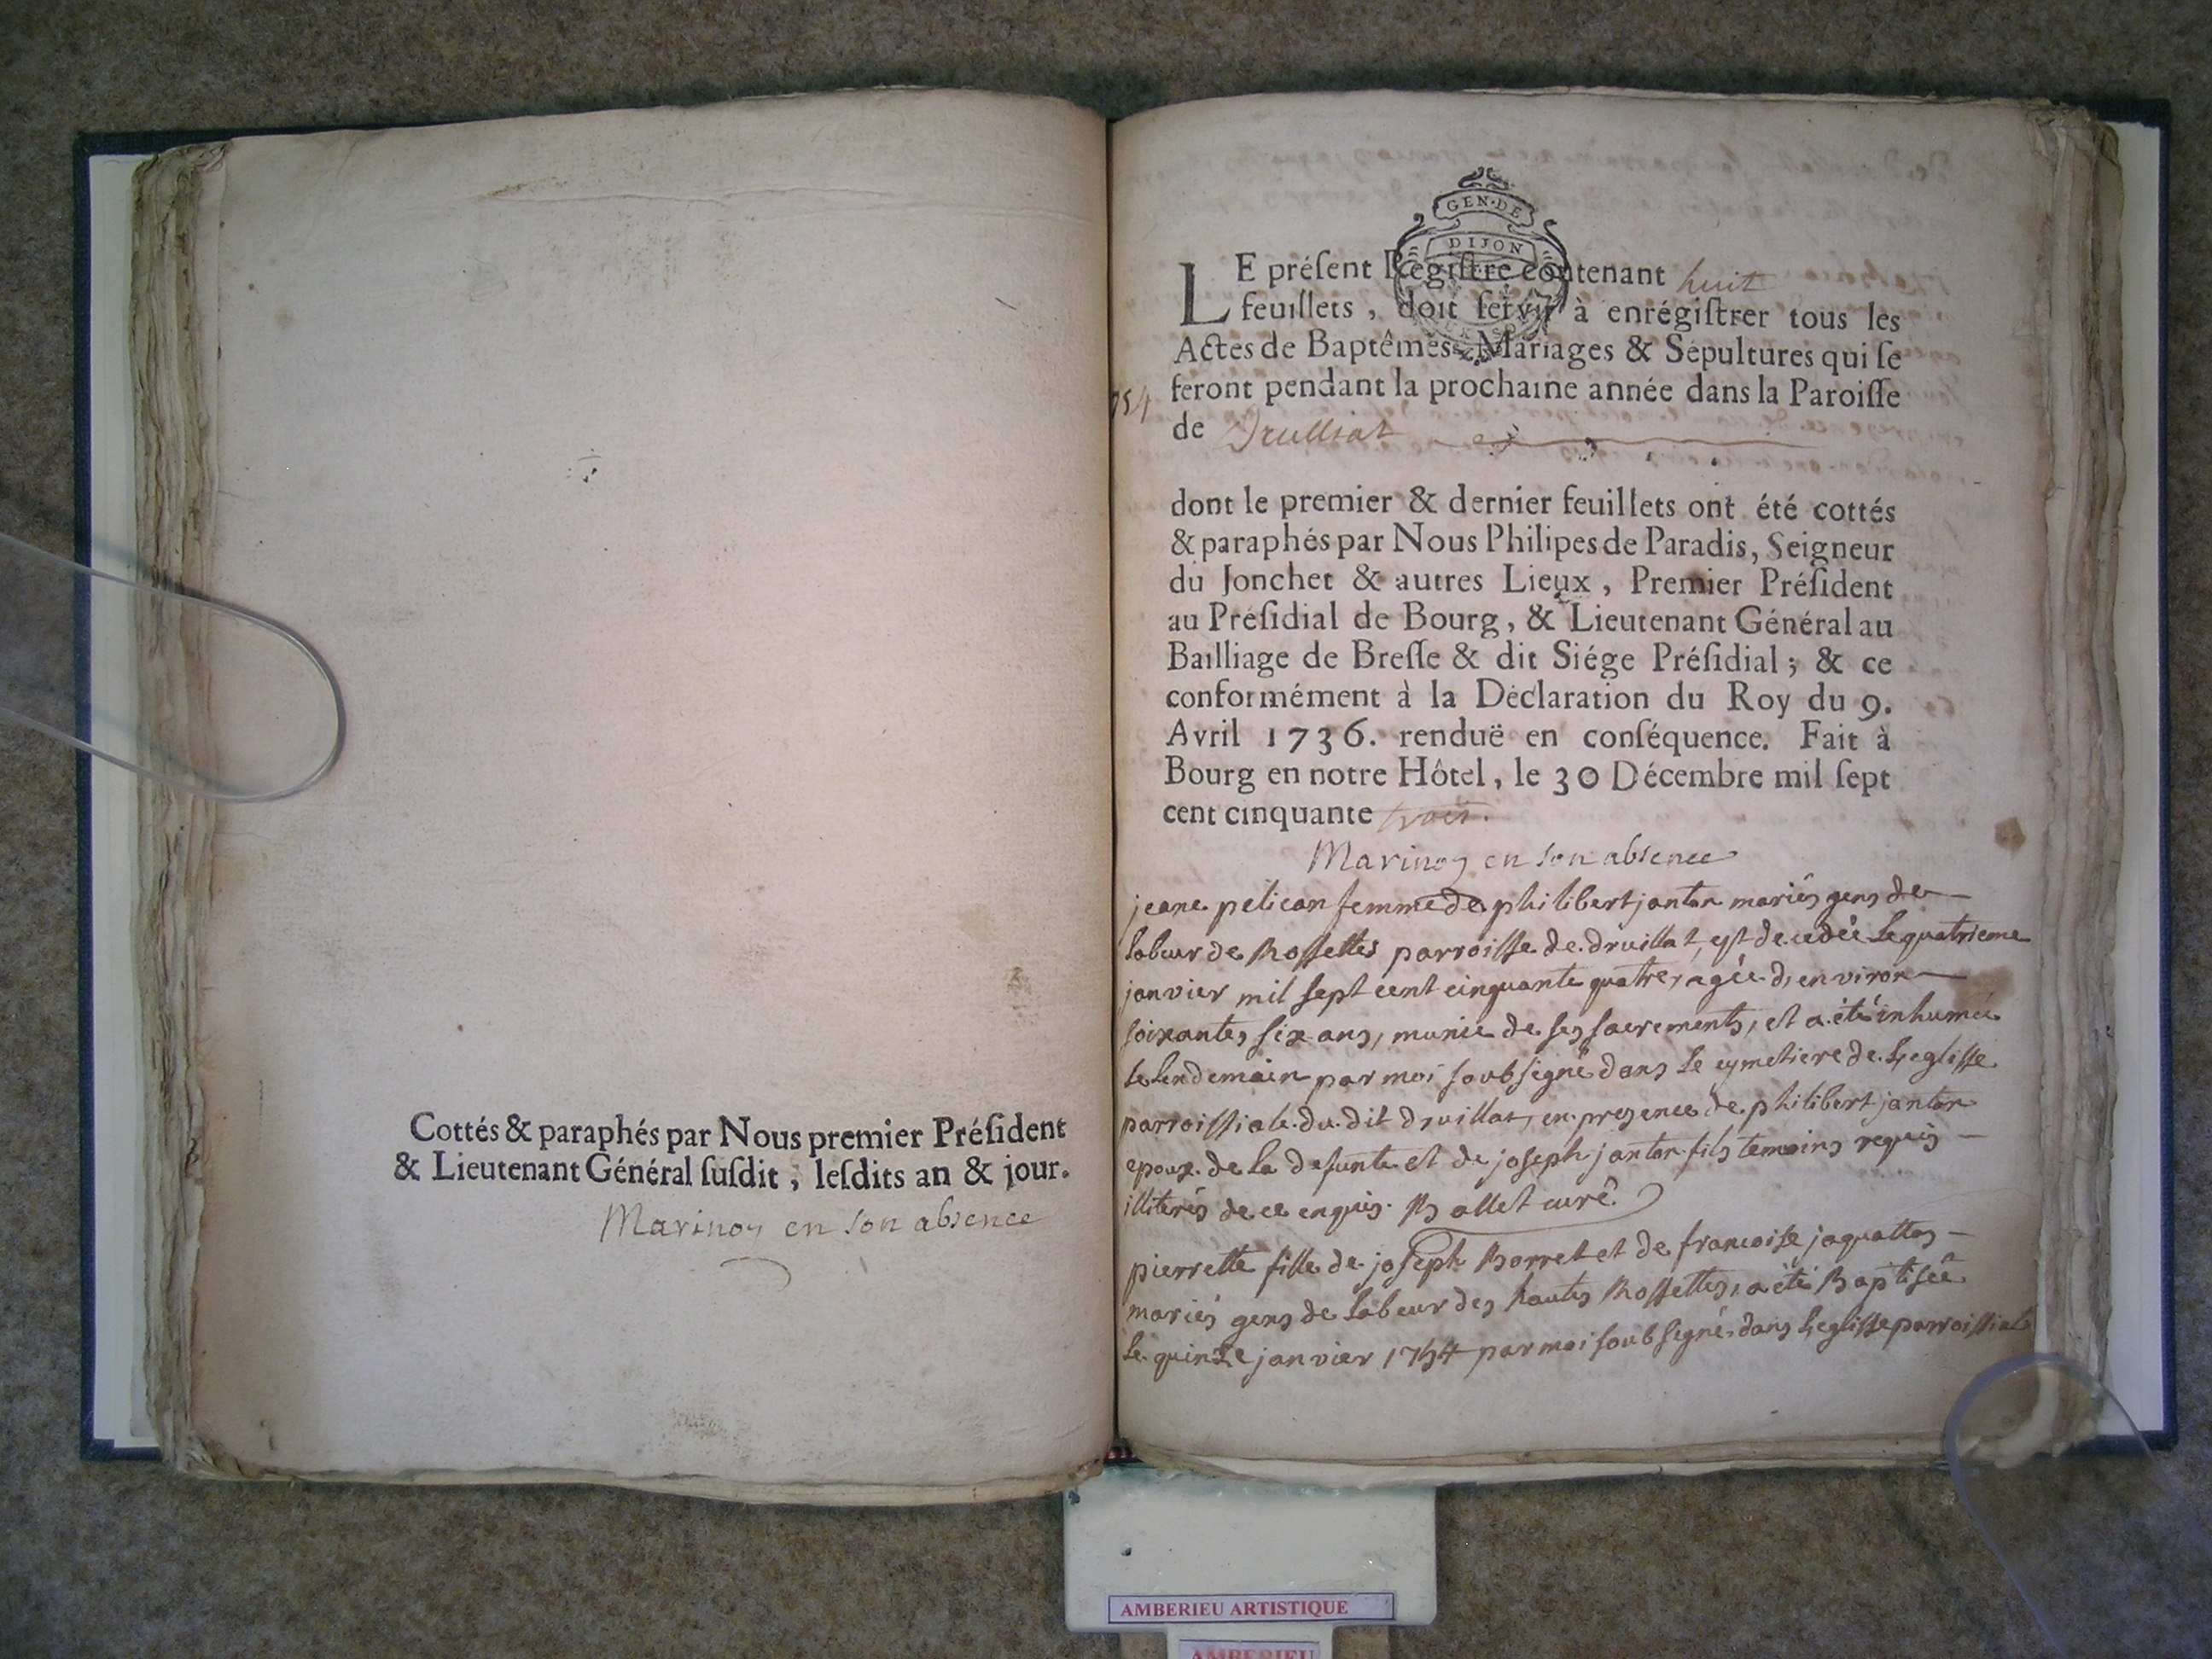 Cottés & paraphés par Nous premier Préſident
& Lieutenant Général ſuſdit, leſdits an & jour.
Marinon en son absence
GEN·DE
DIJON
LE préſent Regiſtre contenant huit
feuillets, doit ſervir à enrégiſtrer tous les
Actes de Baptêmes, Mariages & Sépultures qui ſe
feront pendant la prochaine année dans la Paroiſſe
de Drulliat
754
dont le premier & dernier feuillets ont été cottés
& paraphés par Nous Philipes de Paradis, Seigneur
du Jonchet & autres Lieux, Premier Préſident
au Préſidial de Bourg, & Lieutenant Général au
Bailliage de Breſſe & dit Siége Préſidial; & ce
conformément à la Déclaration du Roy du 9.
Avril 1736. renduë en conſéquence. Fait à
Bourg en notre Hôtel, le 30 Décembre mil ſept
cent cinquante trois.
en son absence
jeane pelican femme de philibert janton mariés gens de
labeur de Rossettes parroisse de druillat, est decedée le quatrieme
janvier mil sept cent cinquante quatre, agée d'environ
soixante, six ans, munie de ses sacrements, et a été inhumée
le lendemain par moi soubsigné dans le cymetiere de l'eglisse
parroissiale du dit druillat, en presence de philibert janton
epoux de la defunte et de joseph janton fils temoins requis
illiterés de ce enquis. Ballet curé
pierrette fille de joseph Borret et de francoise jaquattes
mariés gens de labeur des hautes Rossettes, a été Baptisée
le quinze janvier 1754 par moi soubsigné, dans l'eglisse parroissiale
AMBERIEU ARTISTIQUE
AMBERIEU